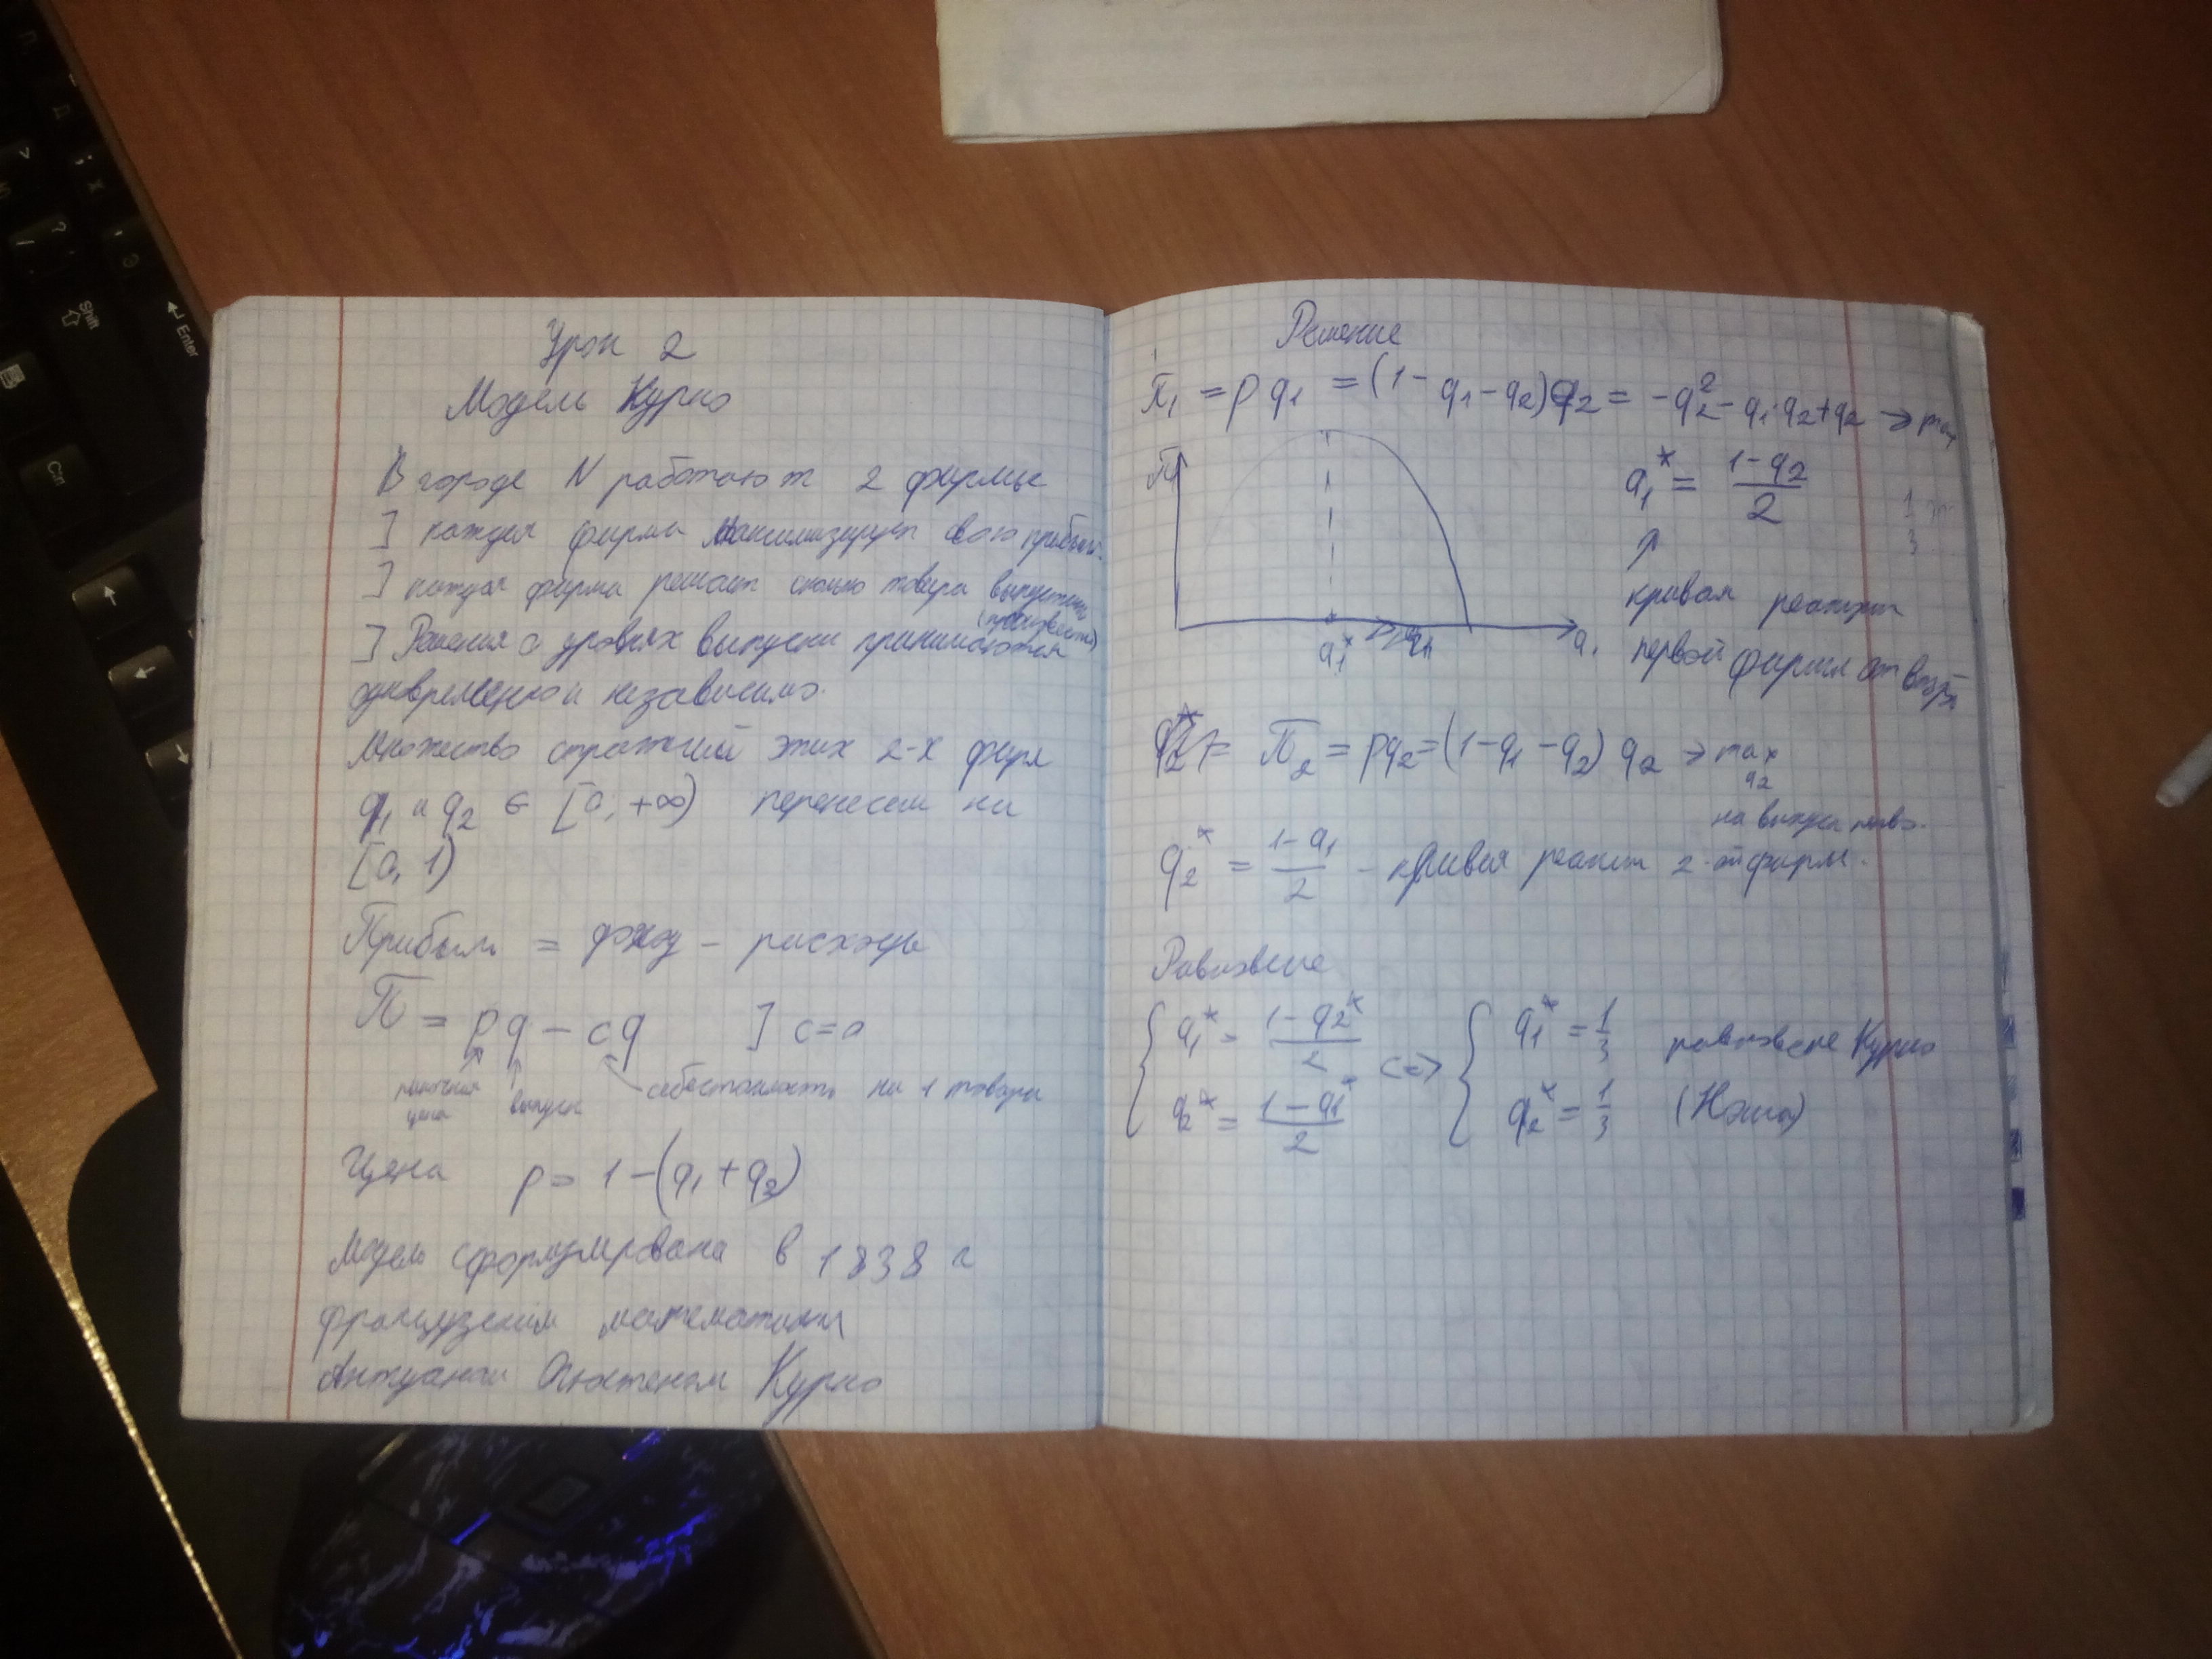 Урок 2
Модель Курно
В городе N работают 2 фирмы
] каждая фирма максимизирует свою прибыль.
] каждая фирма решает сколько товара выпустить
(произвести)
] Решения о уровнях выпуска принимаются
одновременно и независимо.
Множество стратегий этих 2-х фирм
q1 и q2 ∈ [0, +∞) перенесем на
[0, 1)
Прибыль = доход - расходы
П = pq - cq ] c=0
рыночная цена выпуск себестоимость на 1 товара
Цена p = 1-(q1+q2)
Модель сформулирована в 1838 г
французским математиком
Антуаном Огюстеном Курно
Решение
π1 = p q1 = (1- q1-q2)q2 = -q2^2 - q1·q2+q2 → max
П
q1* = (1-q2)/2
↑
кривая реакции
первой фирмы
q1* q1
П2 = pq2 = (1-q1-q2) q2 → max q2
на выпуск
q2* = (1-q1)/2 - кривая реакции 2-ой фирмы.
Равновесие
{ q1* = (1-q2*)/2 <=> { q1* = 1/3 равновесие Курно
q2* = (1-q1*)/2 q2* = 1/3 (Нэша)
Shift
Enter
Ctrl